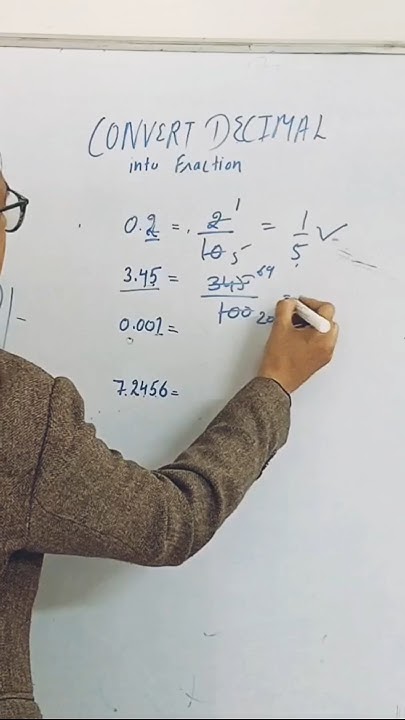 CONVERT DECIMAL
into Fraction
0.2 = 2/10 1 5 = 1/5 ✓
3.45 = 345/100 69 20 =
0.001 =
7.2456 =